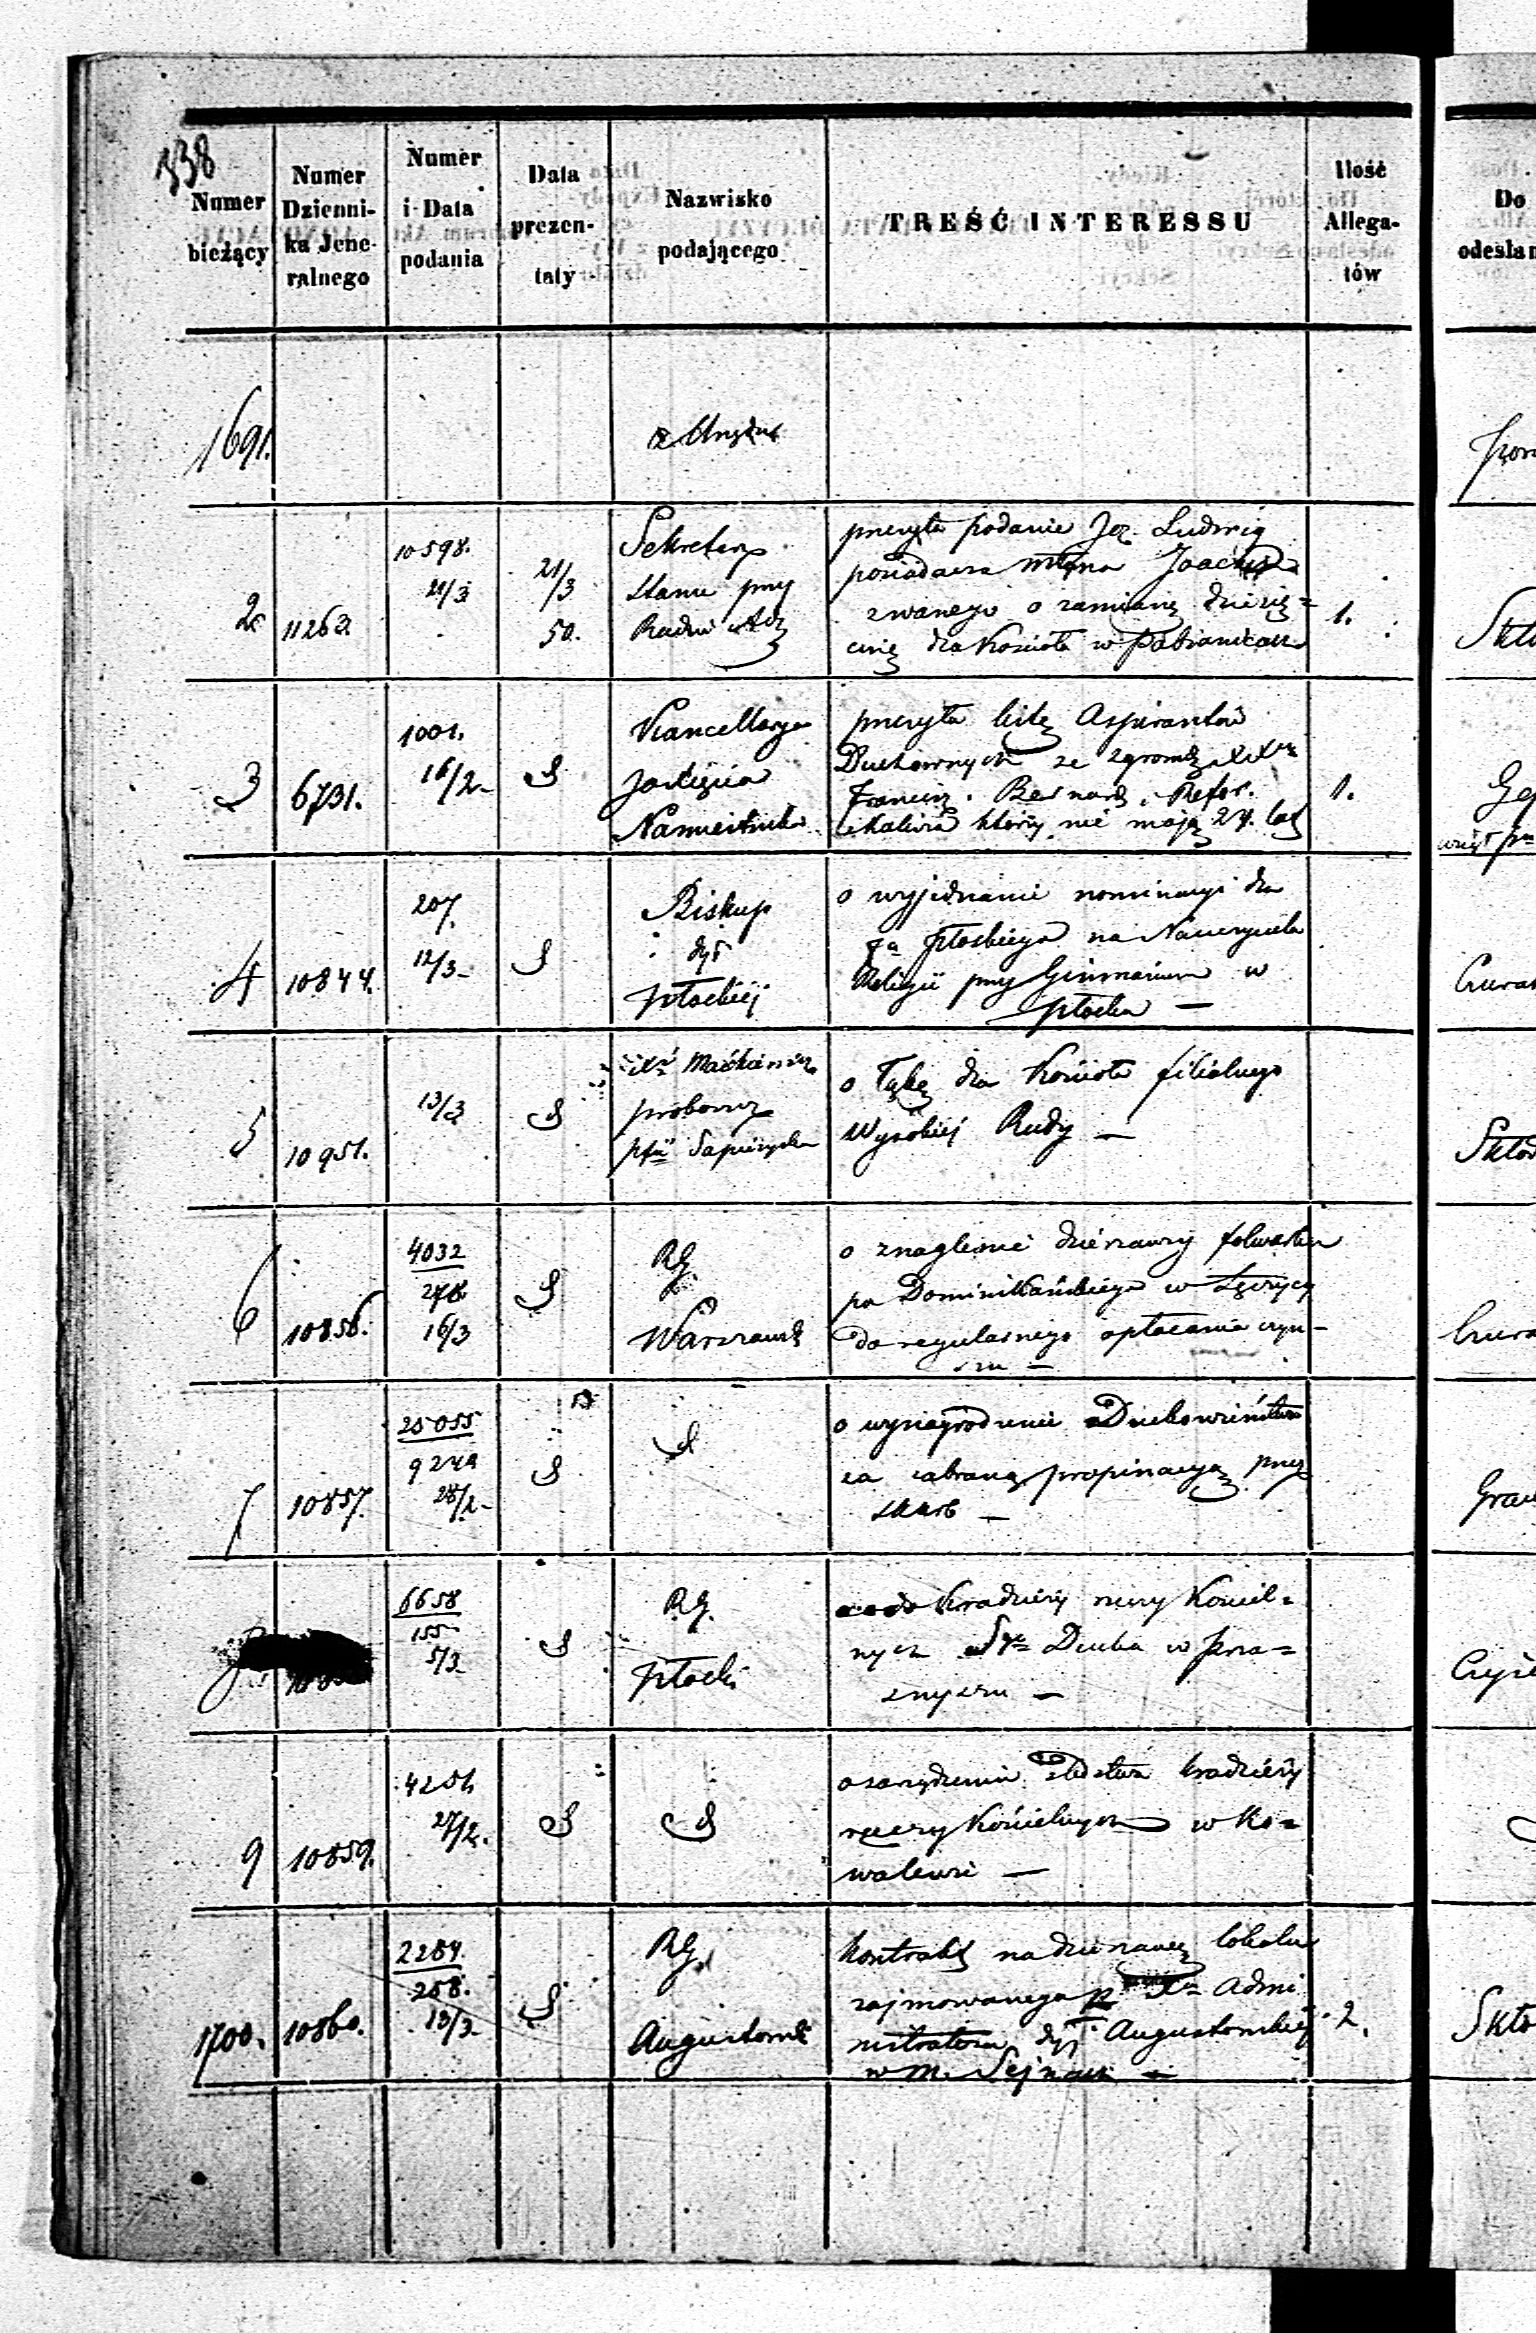 338
Numer bieżący
Numer Dzienni- ka Jene- ralnego
Numer i Data podania
Data prezen- taty
Nazwisko podającego
TREŚĆ INTERESSU
Ilość Allega- tów
Do odesłan
1691.
z Urzędu
2
11263.
10598.
21/3
21/3
50.
Sekretarz
Stanu przy
Radzie Adz
przesyła podanie Józ. Ludwig
posiadacza młyna
zwanego o zamianę dziesię=
ciny dla Kościoła w Pabianicach
1.
3
6731.
1001.
16/2
Kancellarya
Jaśt Xięcia
Namiestnika
przesyła listę Aspirantów
Duchownych ze zgromdz. XXów
Francisz. Bernardz. Refor.
którzy nie mają 24. lat
1.
4
10844.
207.
12/3
Biskup
dyi
płockiej
o wyjednanie nominacyi dla
Xa płoskiego na Nauczyciela
Religii przy Gimnazium w
płocku —
5
10951.
13/3
proboszcz
pfii Sapieżyska
o łąkę dla Kościoła filialnego
Wysokiej Rudy —
6
10856.
4032
278
16/3
RG.
Warszawski
o znaglenie dzierżawcy folwarku
po Dominikańskiego w Łęczycy
do regularnego opłacania czyn-
szu —
7
10857.
25055
9249
28/2
o wynagrodzenie Duchowieństwa
za zabraną propinacyą przez
skarb —
6658
155
5/3
RG.
płocki
kradzieży rzeczy Kościel=
nych Sgo Ducha w prza=
snyszu —
9
10859.
4251.
27/2.
o zarządzeniu śledztwa kradzieży
rzeczy Kościelnych w Ko=
walewie —
1700.
10860.
2284.
258.
13/3
RG.
Augustowski
Kontrakt na dzierżawę lokalu
zajmowanego p. Xa Admi
nistratora dyi Augustowskiej
w m. Sejnach —
2.